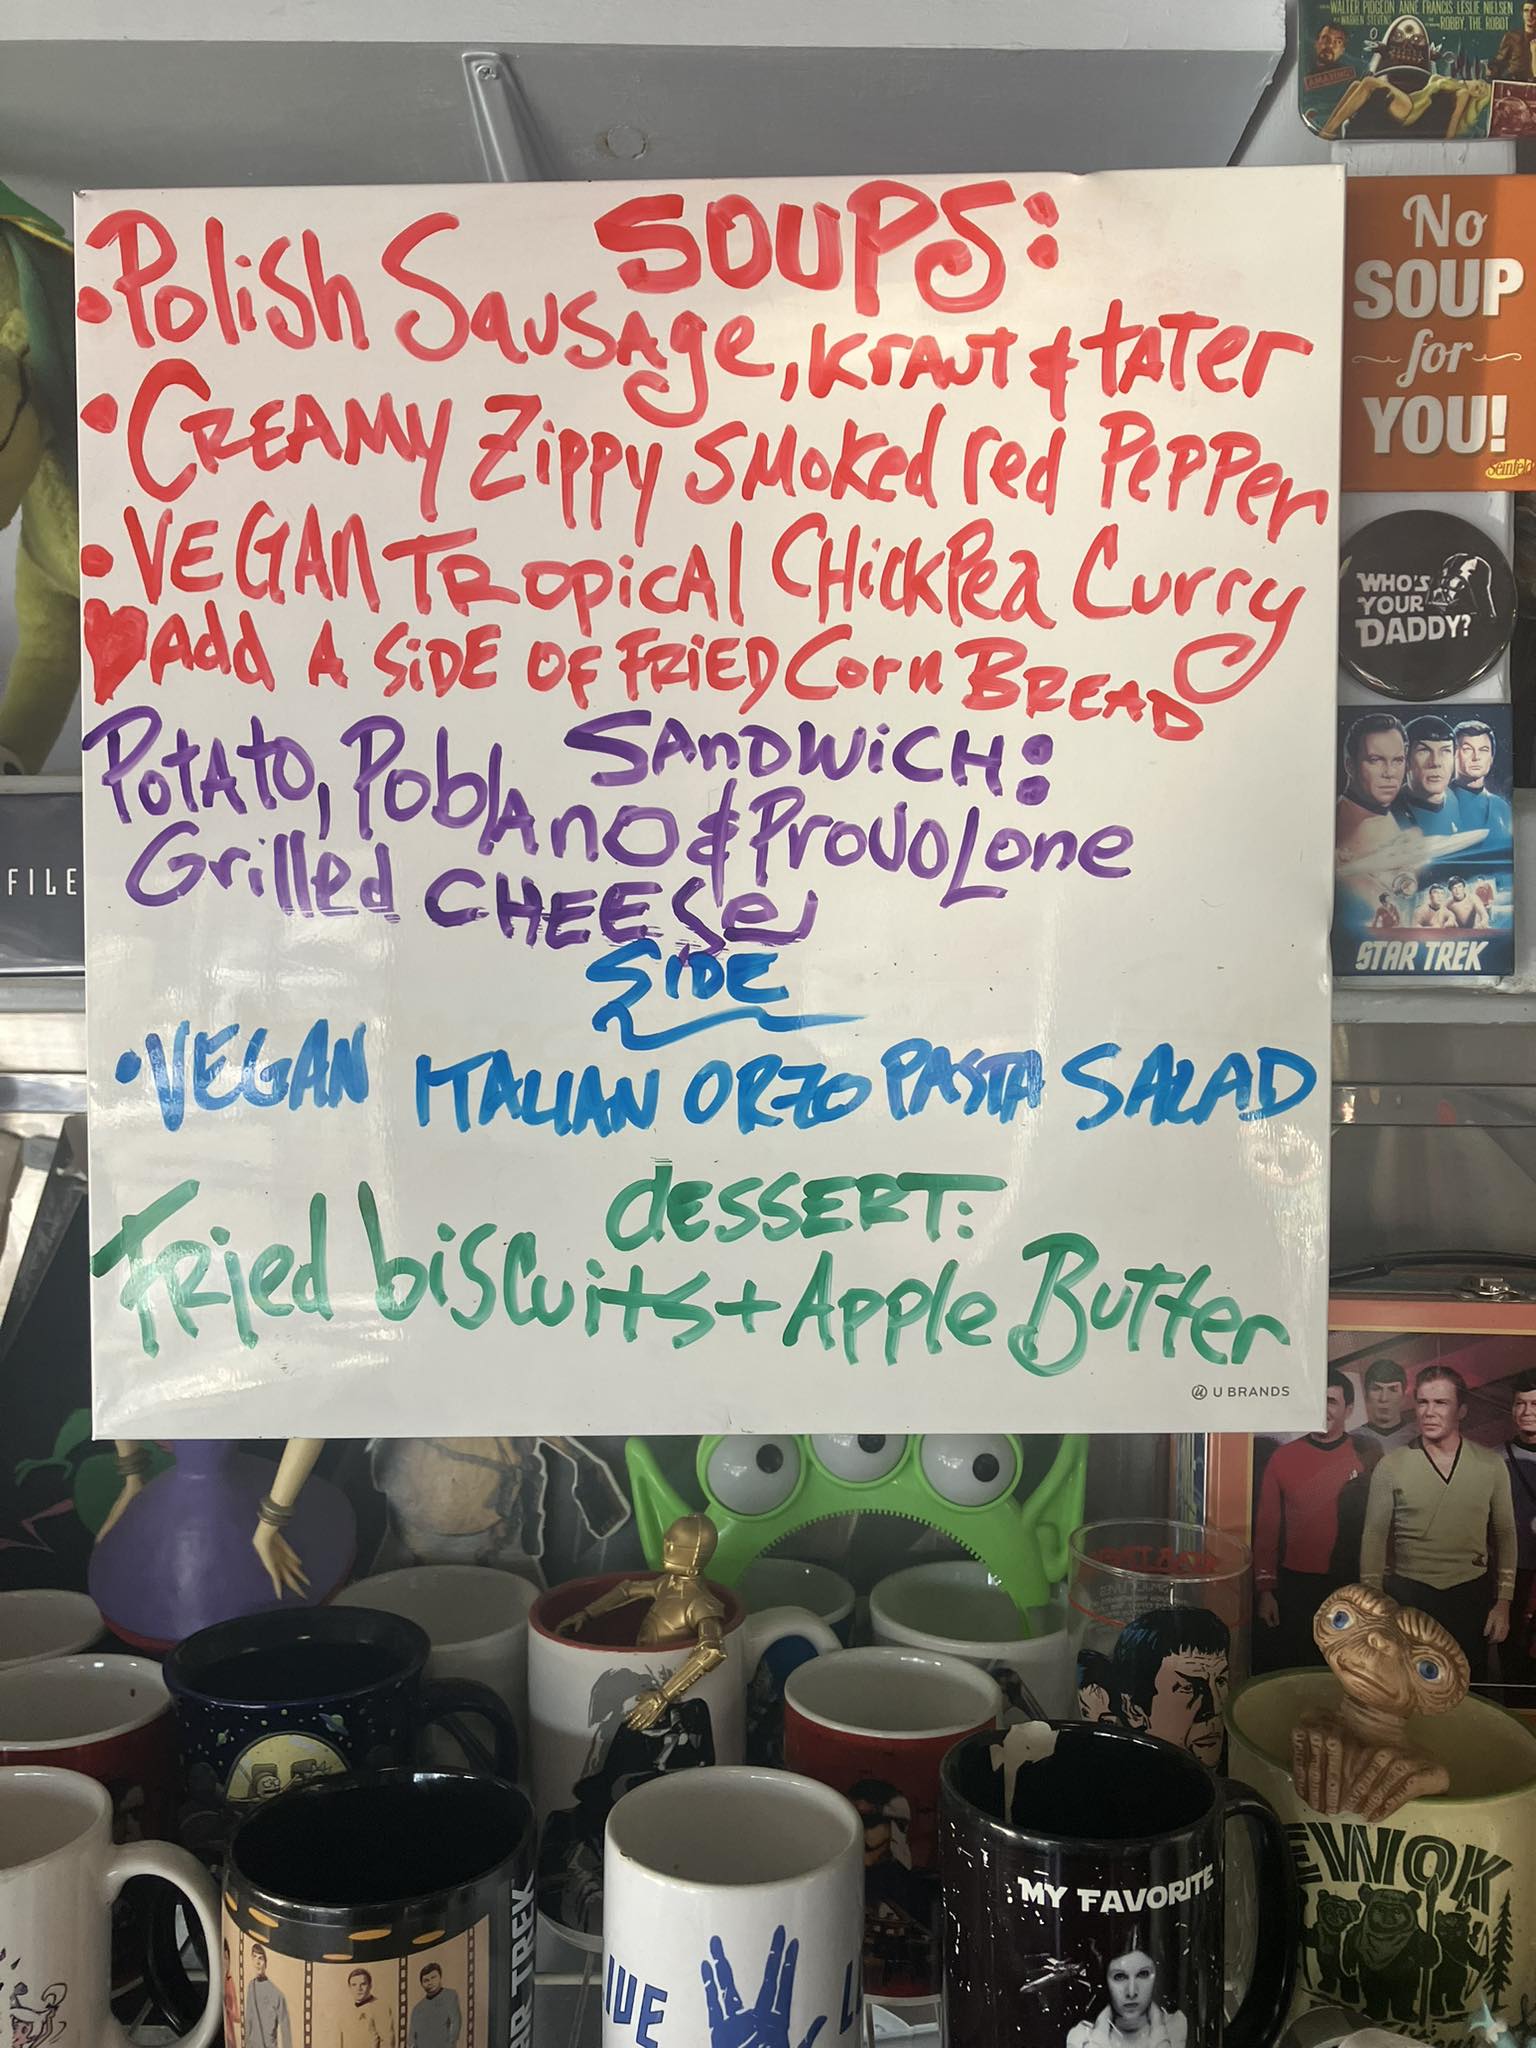 WALTER PIDGEON ANNE FRANCIS LESLIE NIELSEN
WARREN STEVENS
ROBBY, THE ROBOT
AMAZING!
SOUPS:
• Polish Sausage, Kraut & tater
• Creamy Zippy Smoked red Pepper
• VEGAN Tropical Chickpea Curry
Add A Side of Fried Corn Bread
Sandwich:
Potato, Poblano & Provolone
Grilled Cheese
Side
• VEGAN ITALIAN ORZO PASTA SALAD
dessert:
Fried biscuits + Apple Butter
U BRANDS
No
SOUP
for
YOU!
Seinfeld
WHO'S
YOUR
DADDY?
STAR TREK
FILE
EWOK
MY FAVORITE
STAR TREK
LIVE